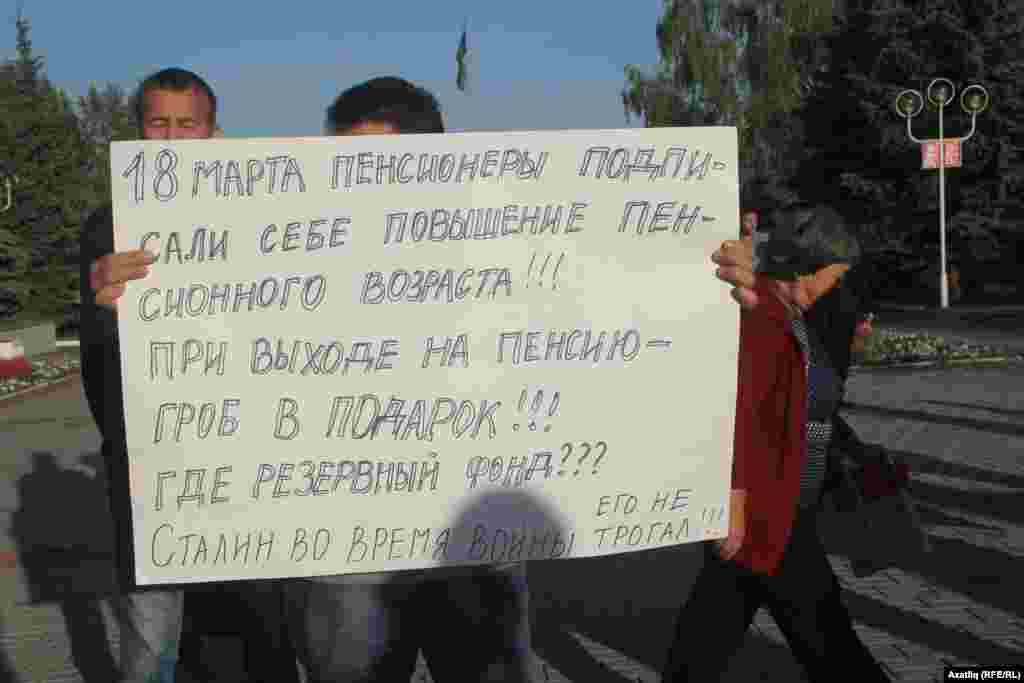 18 МАРТА ПЕНСИОНЕРЫ ПОДПИ-
САЛИ СЕБЕ ПОВЫШЕНИЕ ПЕН-
СИОННОГО ВОЗРАСТА!!!
ПРИ ВЫХОДЕ НА ПЕНСИЮ-
ГРОБ В ПОДАРОК!!!
ГДЕ РЕЗЕРВНЫЙ ФОНД???
СТАЛИН ВО ВРЕМЯ ВОЙНЫ ЕГО НЕ ТРОГАЛ!!!
Azatliq (RFE/RL)